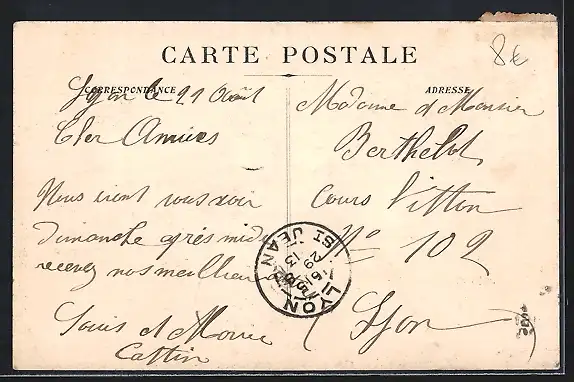 8€
CARTE POSTALE
CORRESPONDANCE
ADRESSE
Lyon le 21 Août
Cher Amies
Nous iront vous voir
dimanche après midi
recevez nos meilleurs
Louis et
Madame et Monsieur
Berthelot
Cours Vitton
N° 102
Lyon
LYON
ST JEAN